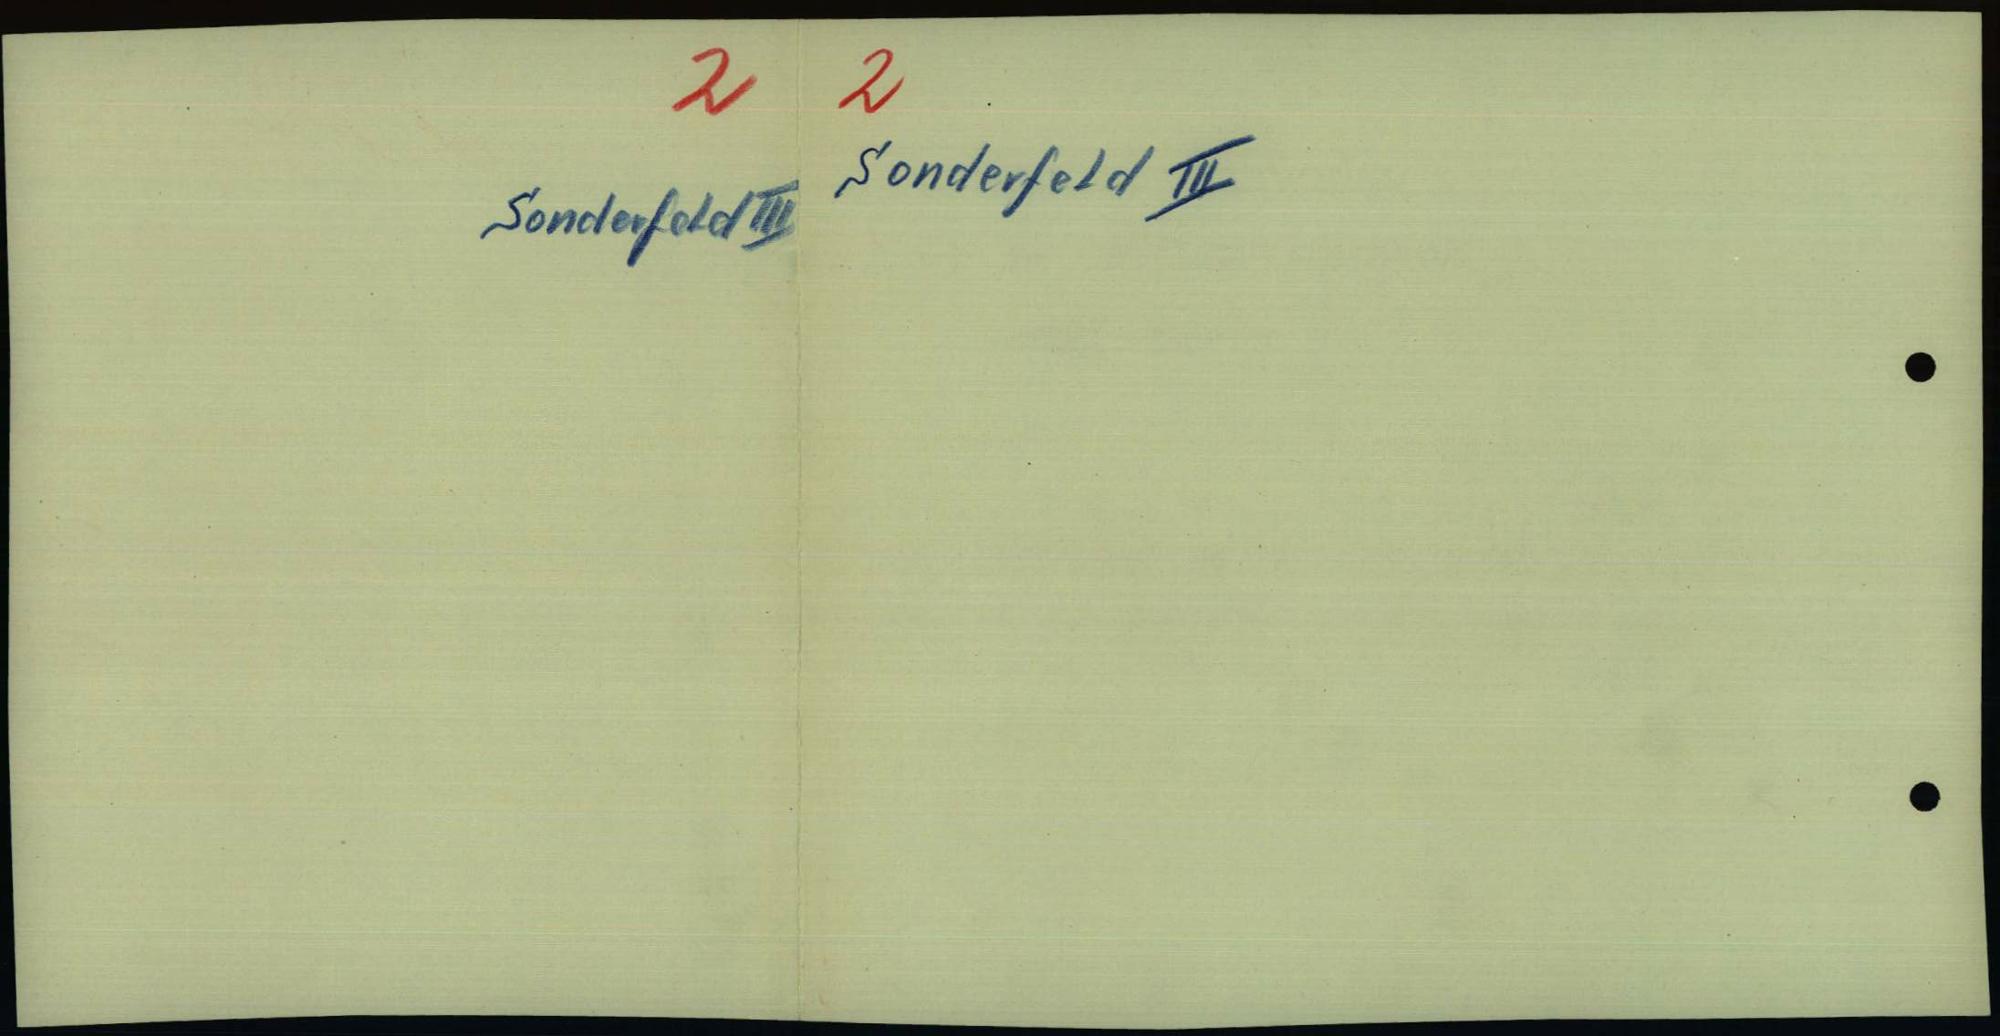 2 2
Sonderfeld III
Sonderfeld III